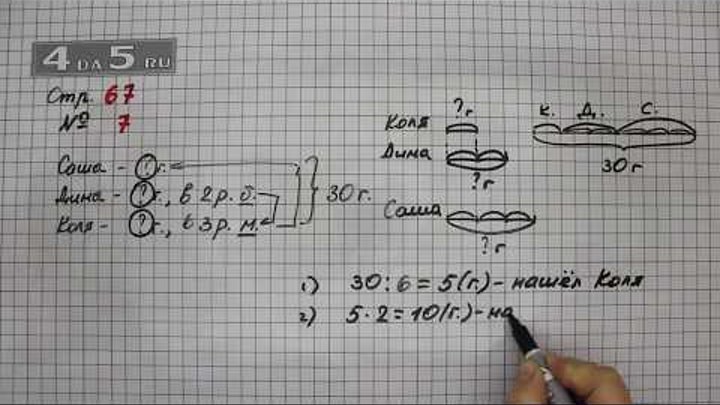 4 DA 5 RU
Стр. 67
№ 7
Саша - ? г.
Дина - ? г., в 2 р. б.
Коля - ? г., в 3 р. м.
30 г.
? г
Коля
Дина
? г
Саша
? г
К. Д. С.
30 г
1) 30 : 6 = 5 (г.) - нашёл Коля
2) 5 · 2 = 10 (г.) - на